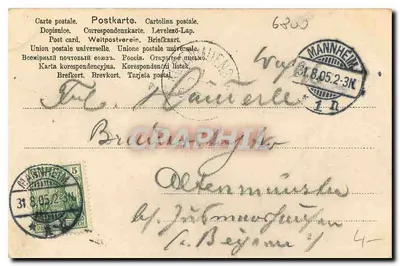 6800
Carte postale. Postkarte. Cartolina postale.
Dopisnice. Correspondenzkarte. Levelező-Lap.
Post card. Weltpostverein. Briefkaart.
Union postale universelle. Unione postale universale.
Всемірный почтовый союзъ. Россія. Открытое письмо.
Karta korespondencyjna. Korespondenční lístek.
Brefkort. Brevkort. Tarjeta postal.
MANNHEIM
31.8.05.2-3N.
* 1 n
Frl.
Altenmünster
MANNHEIM
31 8.05.2-3N.
* 1 n
5
b/ Zusmarshausen
i. Bayern
4-